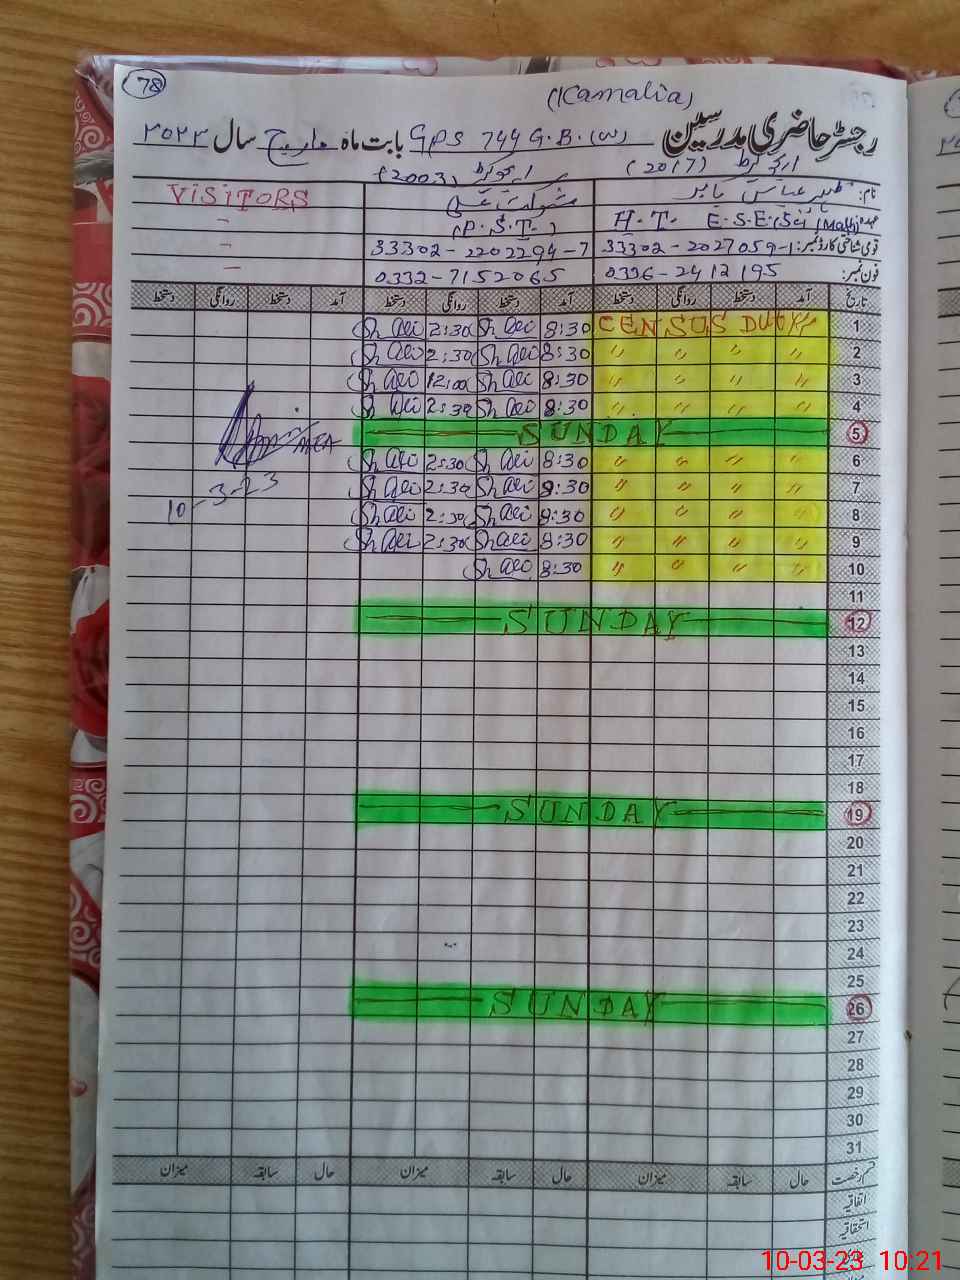 78
(Kamalia)
رجسٹر حاضری مدرسین GPS 744 G.B.(W) بابت ماہ مارچ سال ۲۰۲۳
(2017) (2003)
نام: ظہیر عباس بابر شوکت علی VISITORS
عہدہ: H.T. E.S.E(Sci Math) (P.S.T.) -
قومی شناختی کارڈ نمبر: 33302-2027059-1 33302-2202294-7 -
فون نمبر: 0336-2412195 0332-7152065 -
تاریخ آمد دستخط روانگی دستخط آمد دستخط روانگی دستخط آمد دستخط روانگی دستخط
1 CENSUS DUTY 8:30 Sh Ali 2:30 Sh Ali
2 〃 〃 〃 〃 8:30 Sh Ali 2:30 Sh Ali
3 〃 〃 〃 〃 8:30 Sh Ali 12:00 Sh Ali
4 〃 〃 〃 〃 8:30 Sh Ali 2:30 Sh Ali
5 SUNDAY
6 〃 〃 〃 〃 8:30 Sh Ali 2:30 Sh Ali
7 〃 〃 〃 〃 8:30 Sh Ali 2:30 Sh Ali
8 〃 〃 〃 〃 8:30 Sh Ali 2:30 Sh Ali
9 〃 〃 〃 〃 8:30 Sh Ali 2:30 Sh Ali
10 〃 〃 〃 〃 8:30 Sh Ali
MEA
10-3-23
11
12 SUNDAY
13
14
15
16
17
18
19 SUNDAY
20
21
22
23
24
25
26 SUNDAY
27
28
29
30
31
قسم رخصت حال سابقہ میزان حال سابقہ میزان حال سابقہ میزان
اتفاقیہ
استحقاقیہ
10-03-23 10:21